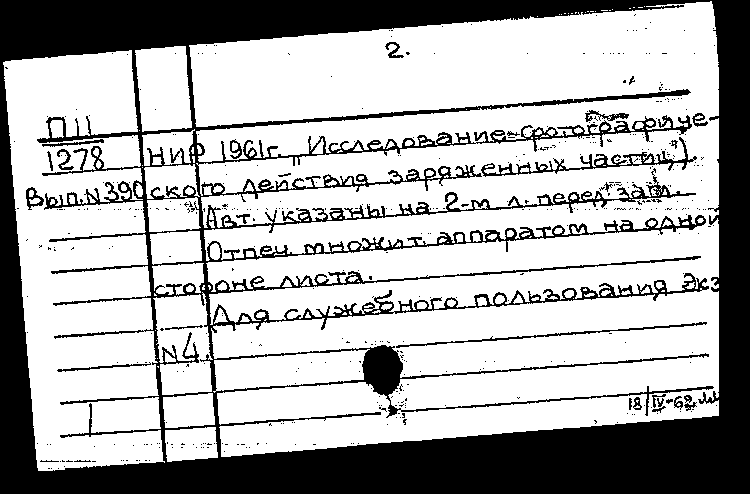 2.
П11
1278 НИР 1961г. „Исследование фотографиче-
Вып.N390 ского действия заряженных частиц").
Авт. указаны на 2-м л. перед загл.
Отпеч. множит. аппаратом на одной
стороне листа.
Для служебного пользования Экз
N4.
18/IV-62